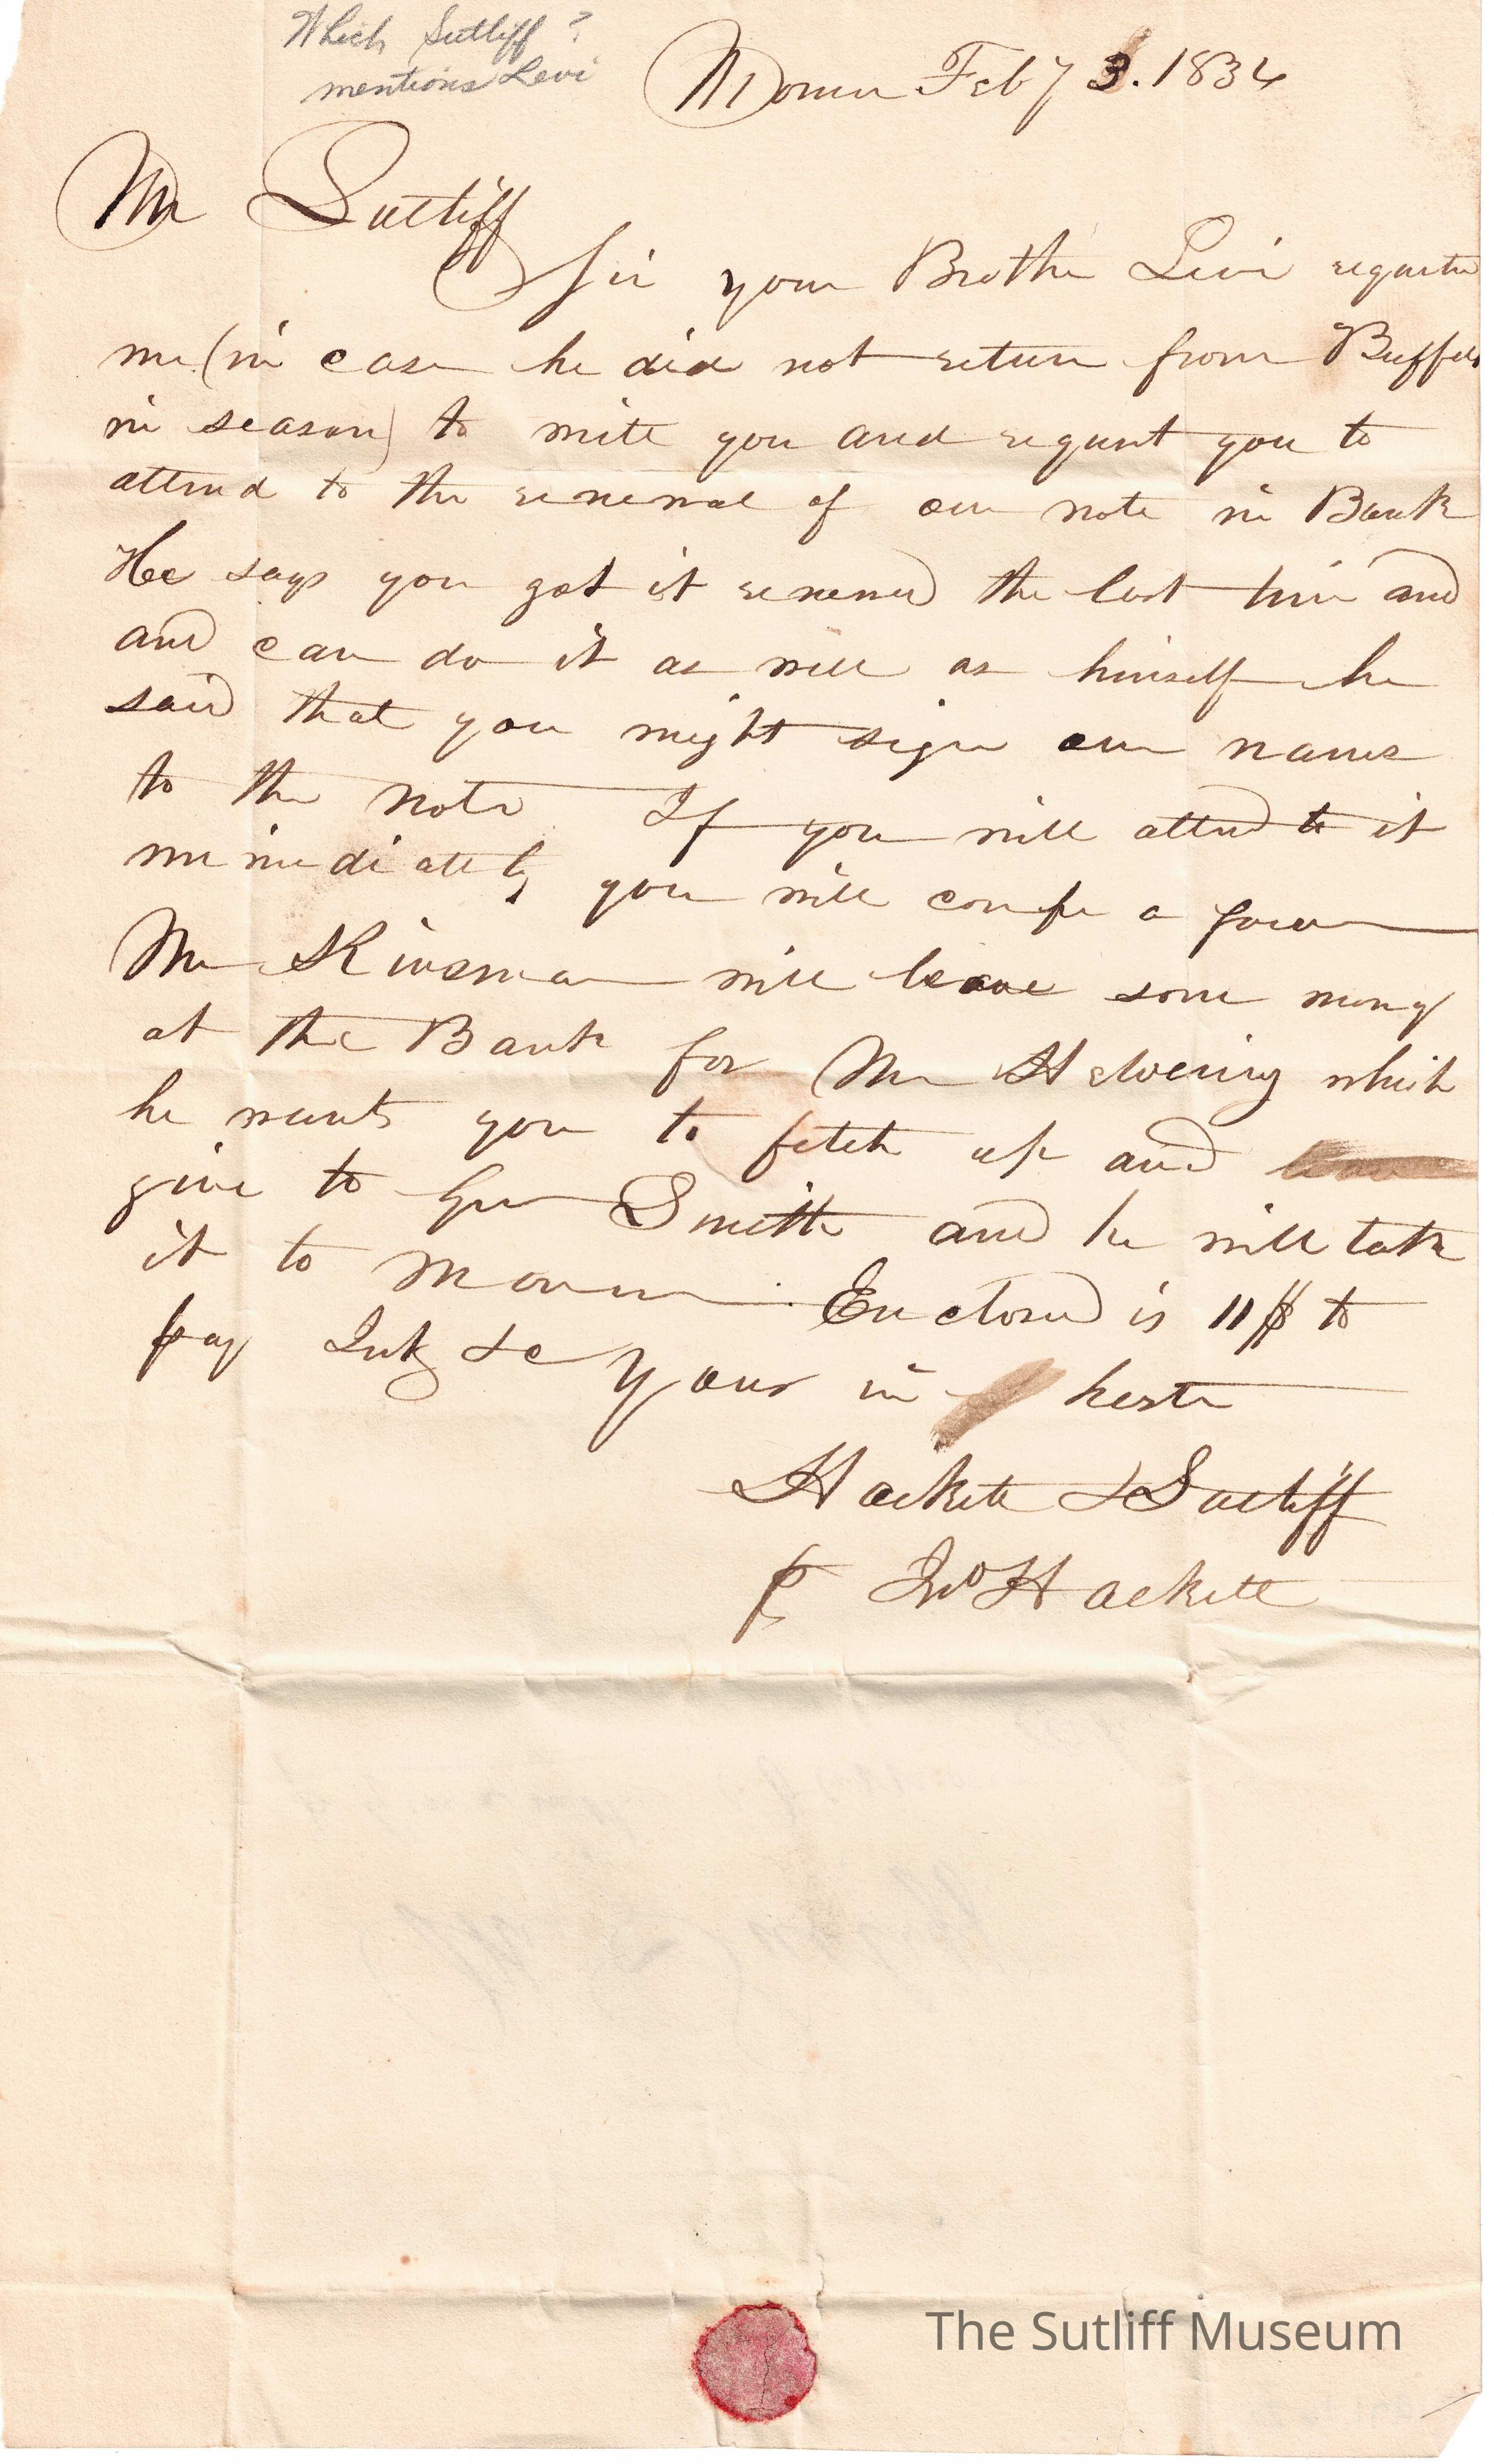 Which Sutliff?
mentions Levi
Feby 3. 1834
Mr Sutliff
Sir your Brother Levi
me (in case he did not return from
in season) to write you and request you to
attend to the renewal of our note in Bank
He says you got it renewed the last time and
and can do it as well as himself he
said that you might sign our names
to the note If you will attend to it
immediately you will confer a favor
Mr Kinsman will leave some money
at the Bank for Mr which
he wants you to fetch up and
give to Smith and he will take
it to Enclosed is 11$ to
pay &c Yours in heste
Hackett & Sutliff
P Jno Hackett
The Sutliff Museum